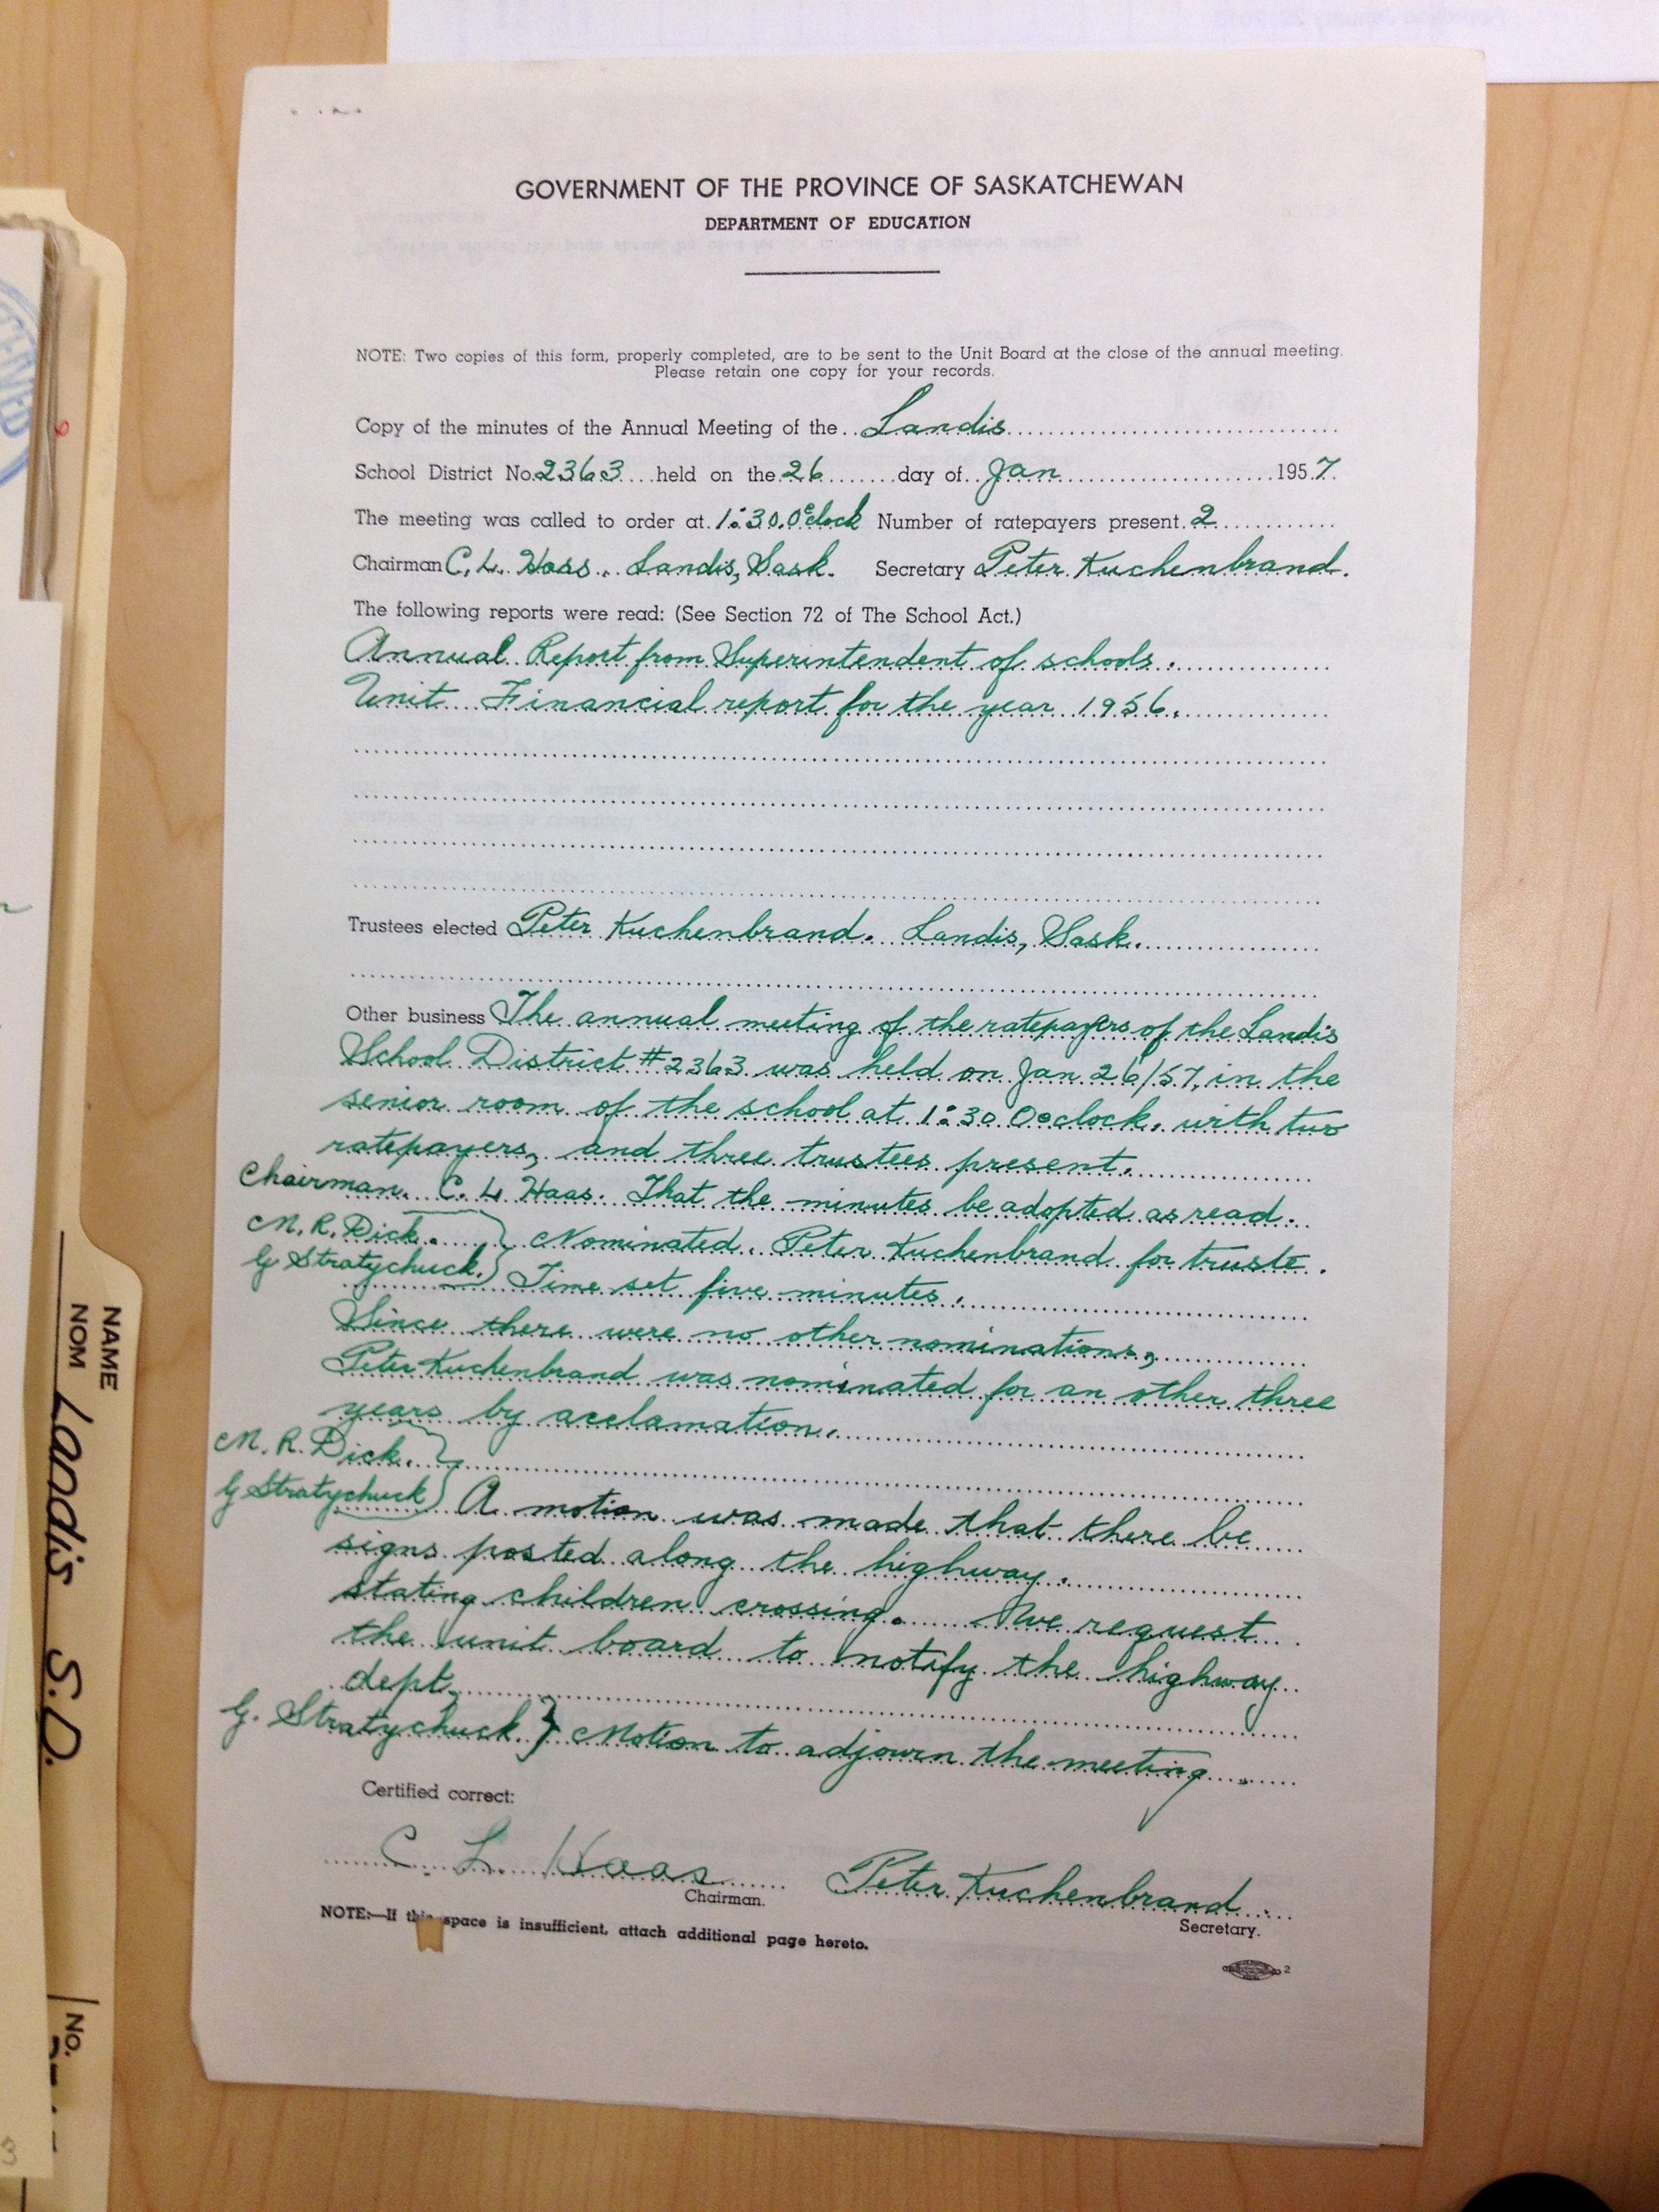 GOVERNMENT OF THE PROVINCE OF SASKATCHEWAN
DEPARTMENT OF EDUCATION
NOTE: Two copies of this form, properly completed, are to be sent to the Unit Board at the close of the annual meeting.
Please retain one copy for your records.
Copy of the minutes of the Annual Meeting of the Landis
School District No. 2363 held on the 26 day of Jan 1957.
The meeting was called to order at 1:30 Oclock Number of ratepayers present 2
Chairman C. L. Haas. Landis, Sask. Secretary Peter Kuchenbrand.
The following reports were read: (See Section 72 of The School Act.)
Annual Report from Superintendent of schools.
Unit Financial report for the year 1956.
Trustees elected Peter Kuchenbrand. Landis, Sask.
Other business The annual meeting of the ratepayers of the Landis
School District #2363 was held on Jan 26/57, in the
senior room of the school at 1:30 Oclock, with two
ratepayers, and three trustees present.
Chairman. C. L. Haas. That the minutes be adopted as read.
M. R. Dick. } Nominated. Peter Kuchenbrand for truste.
G Stratychuck. } Time set five minutes.
Since there were no other nominations,
Peter Kuchenbrand was nominated for an other three
years by acclamation.
M. R. Dick. }
G Stratychuck } A motion was made that there be
signs posted along the highway.
stating children crossing. We request
the unit board to notify the highway
dept.
G. Stratychuck. } Motion to adjourn the meeting.
Certified correct:
C. L. Haas Peter Kuchenbrand.
Chairman. Secretary.
NOTE:—If this space is insufficient, attach additional page hereto.
2
NAME
NOM Landis S.D.
No.